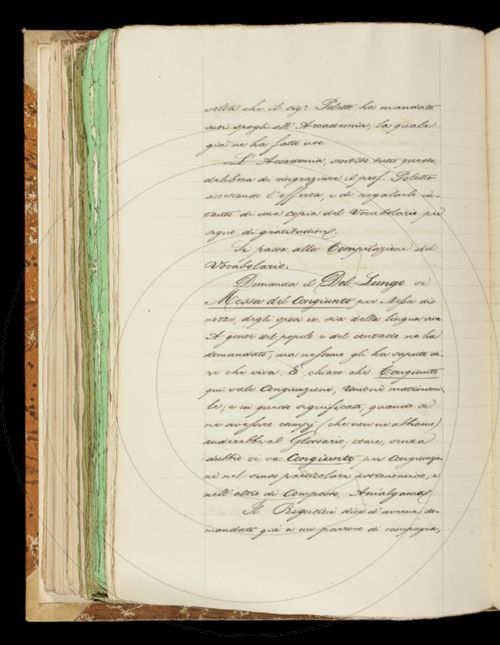 volta che il sig.r Poletto ha mandato
suoi spogli all'Accademia, la quale
già ne ha fatto uso.
L'Accademia, sentito tutto questo,
delibera di ringraziare il prof. Poletto
accettando l'offerta, e di regalarle in-
tanto di una copia del Vocabolario per
segno di gratitudine.
Si passa alla Compilazione del
Vocabolario.
Domanda il Del Lungo se
Messa del Congiunto per Messa di
nozze, degli sposi ec. sia della lingua viva
A gente del popolo e del contado ne ha
domandato, ma nessuno gli ha saputo di-
re che viva. È chiaro che Congiunto
qui vale Congiunzione, Unione matrimonia-
le, e in questo significato, quando se
ne avessero esempj (che non ne abbiamo)
anderebbe al Glossario, come, senza
dubbio ci va Congiunto per Congiunzio-
ne nel senso particolare astronomico, e
nell'altro di Composto, Amalgama.
Il Rigutini dice d'averne do-
mandato già a un parroco di campagna,